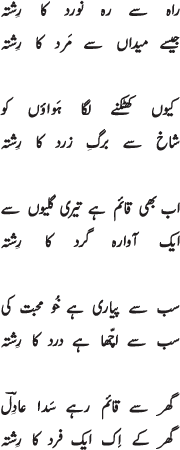 راہ سے رہ نورد کا رِشتہ
جیسے میداں سے مَرد کا رِشتہ
کیوں کھٹکنے لگا ہَواؤں کو
شاخ سے برگِ زرد کا رِشتہ
اب بھی قائم ہے تیری گلیوں سے
ایک آوارہ گرد کا رِشتہ
سب سے پیاری ہے خُو محبت کی
سب سے اچھّا ہے درد کا رِشتہ
گھر سے قائم رہے سَدا عادِلؔ
گھر کے اِک ایک فرد کا رِشتہ